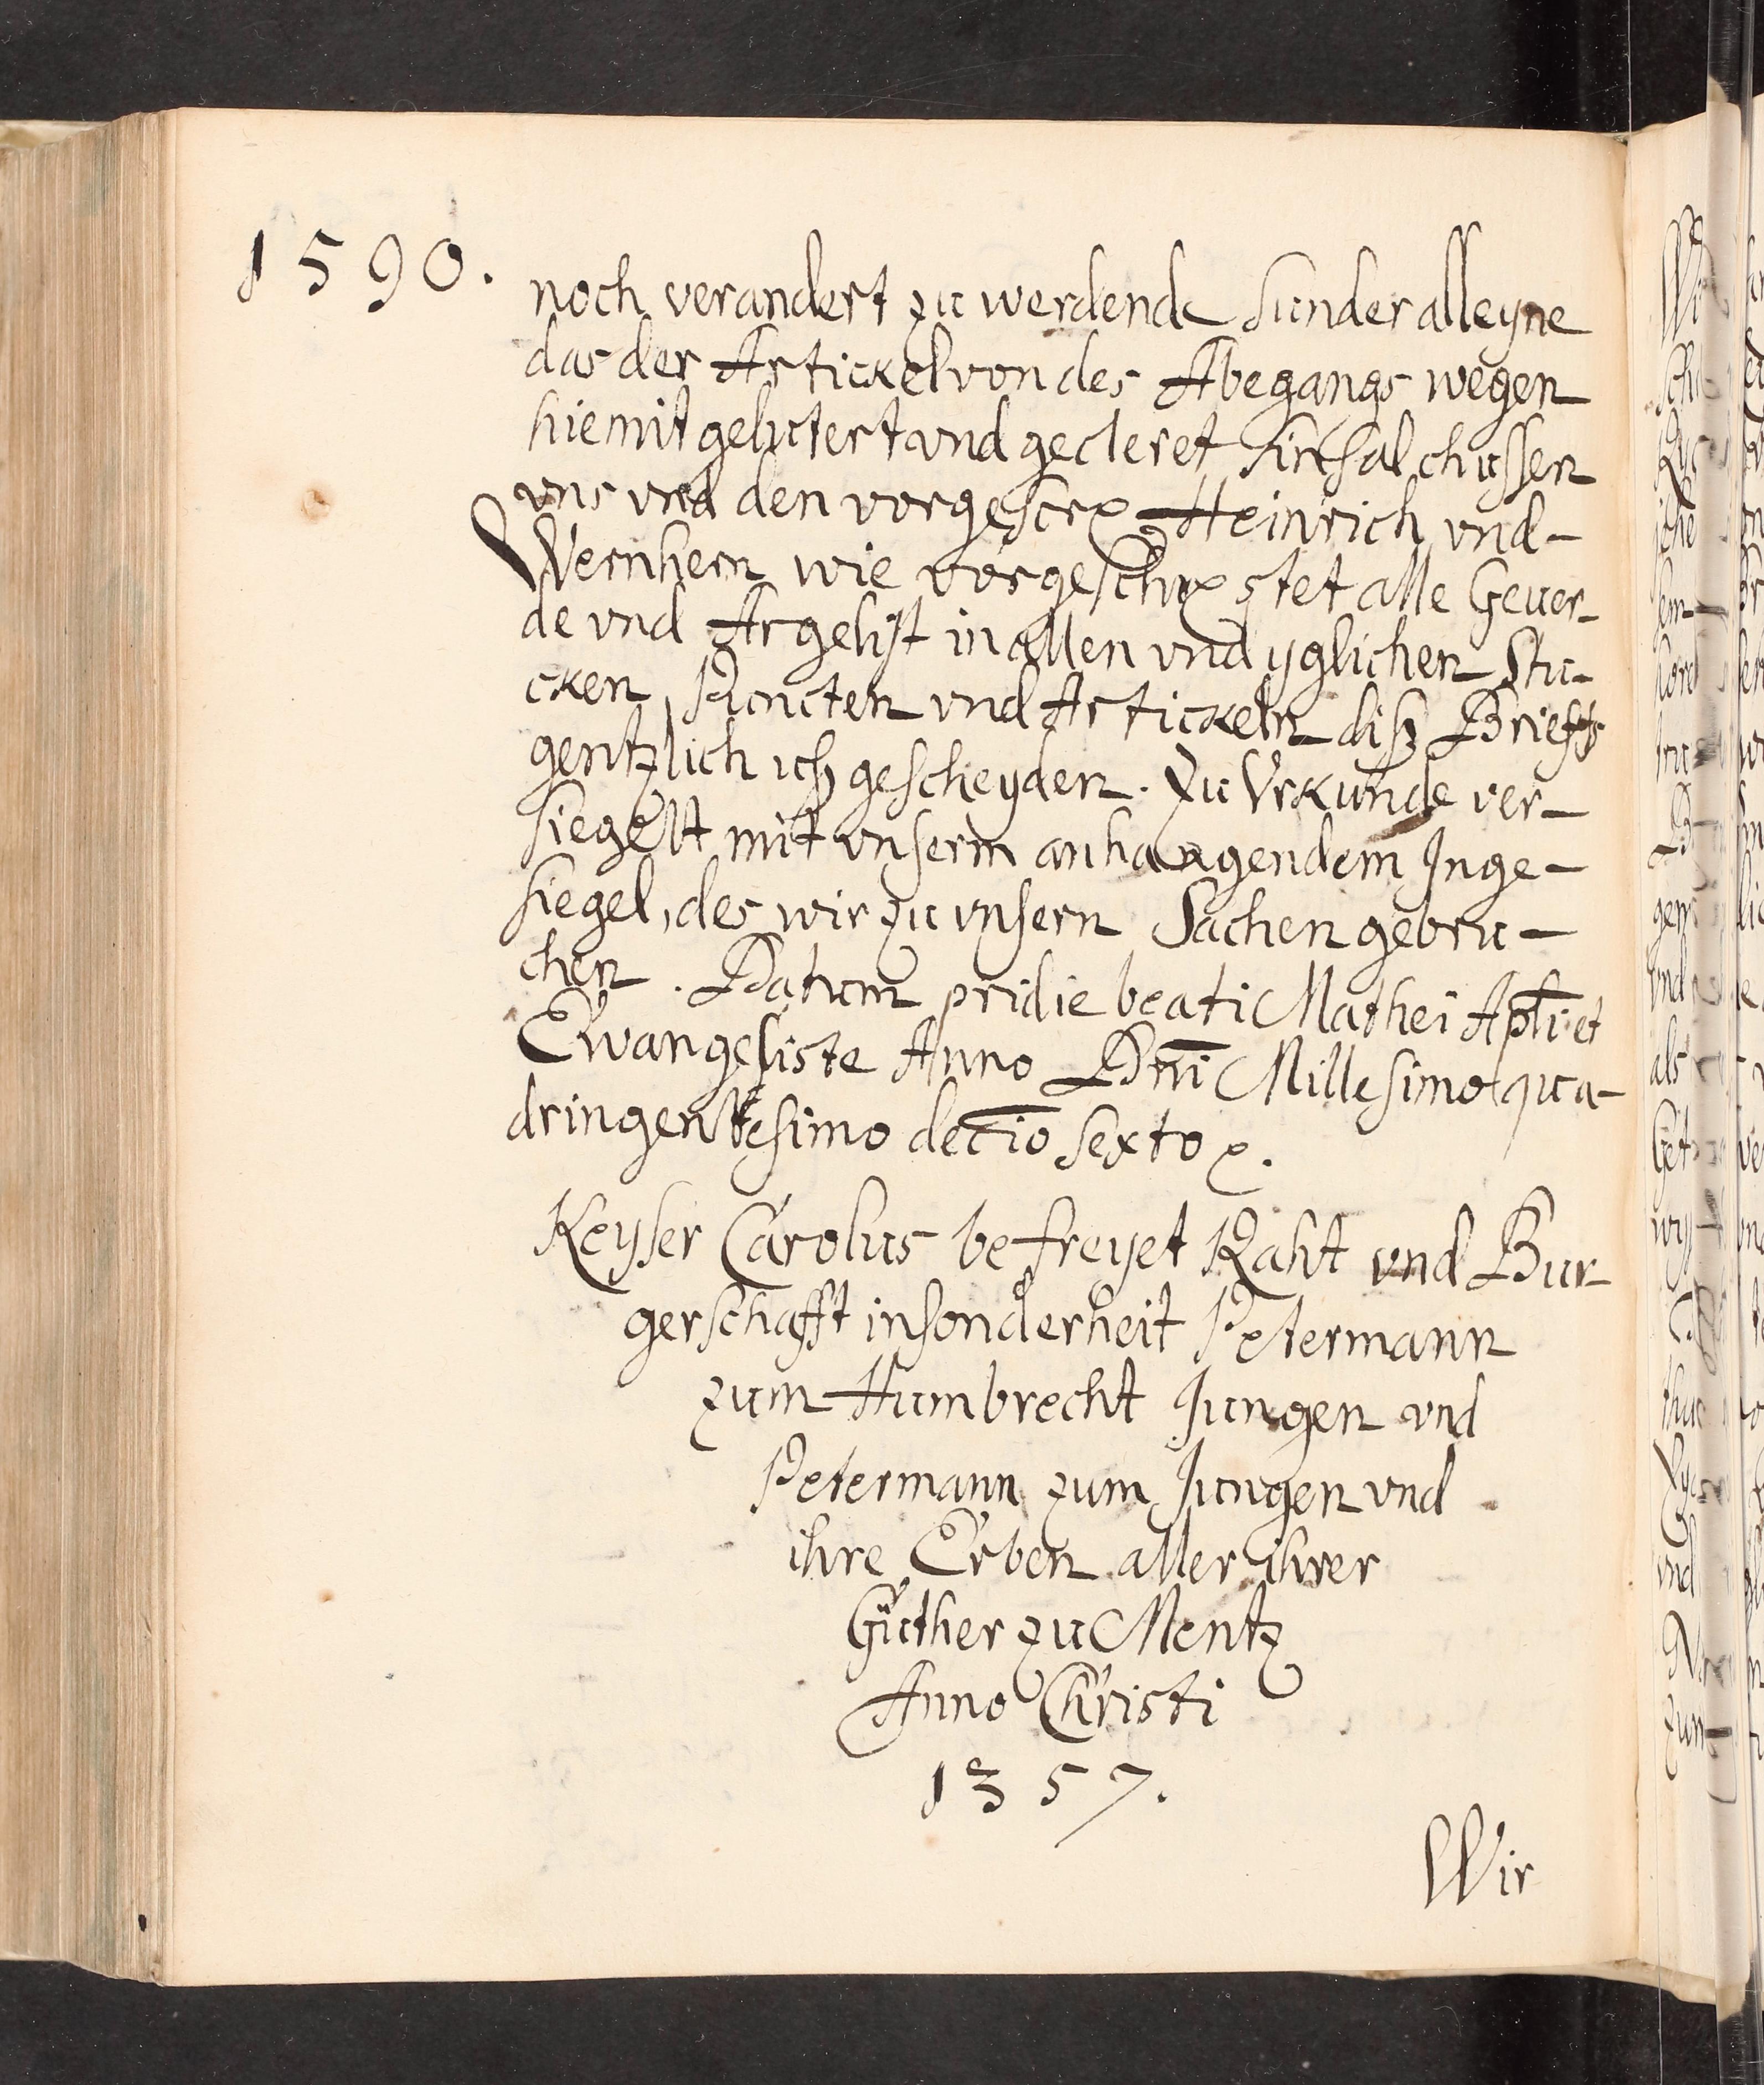 1590.
noch verandert zu werdende sunder alleyne
das der Artickel von des Abegangs wegen
hiemit gelutert vnd gecleret sin sal chussen
vns vnd den vorgescrx Heinrich vnd-
Wernhern wie vorgeschrx stet alle Geuer-
de vnd Argelist in allen vnd yglichen Stu-
cken Puncten vnd Artickeln diß Brieffs
gentzlich uß gescheyden. Zu Vrkunde ver-
siegelt mit vnserm anhangendem Inge-
siegel, des wir zu vnsern Sachen gebru-
chen. Datum pridie beati Mathei Apli et
Ewangeliste Anno Dni Millesimo qua-
dringentesimo decio sexto x.
Keyser Carolus befreyet Raht vnd Bur-
gerschafft insonderheit Petermann
zum Humbrecht Jungen vnd
Petermann zum Jungen vnd
ihre Erben aller ihrer
Güther zu Mentz
Anno Christi
1357.
Wir